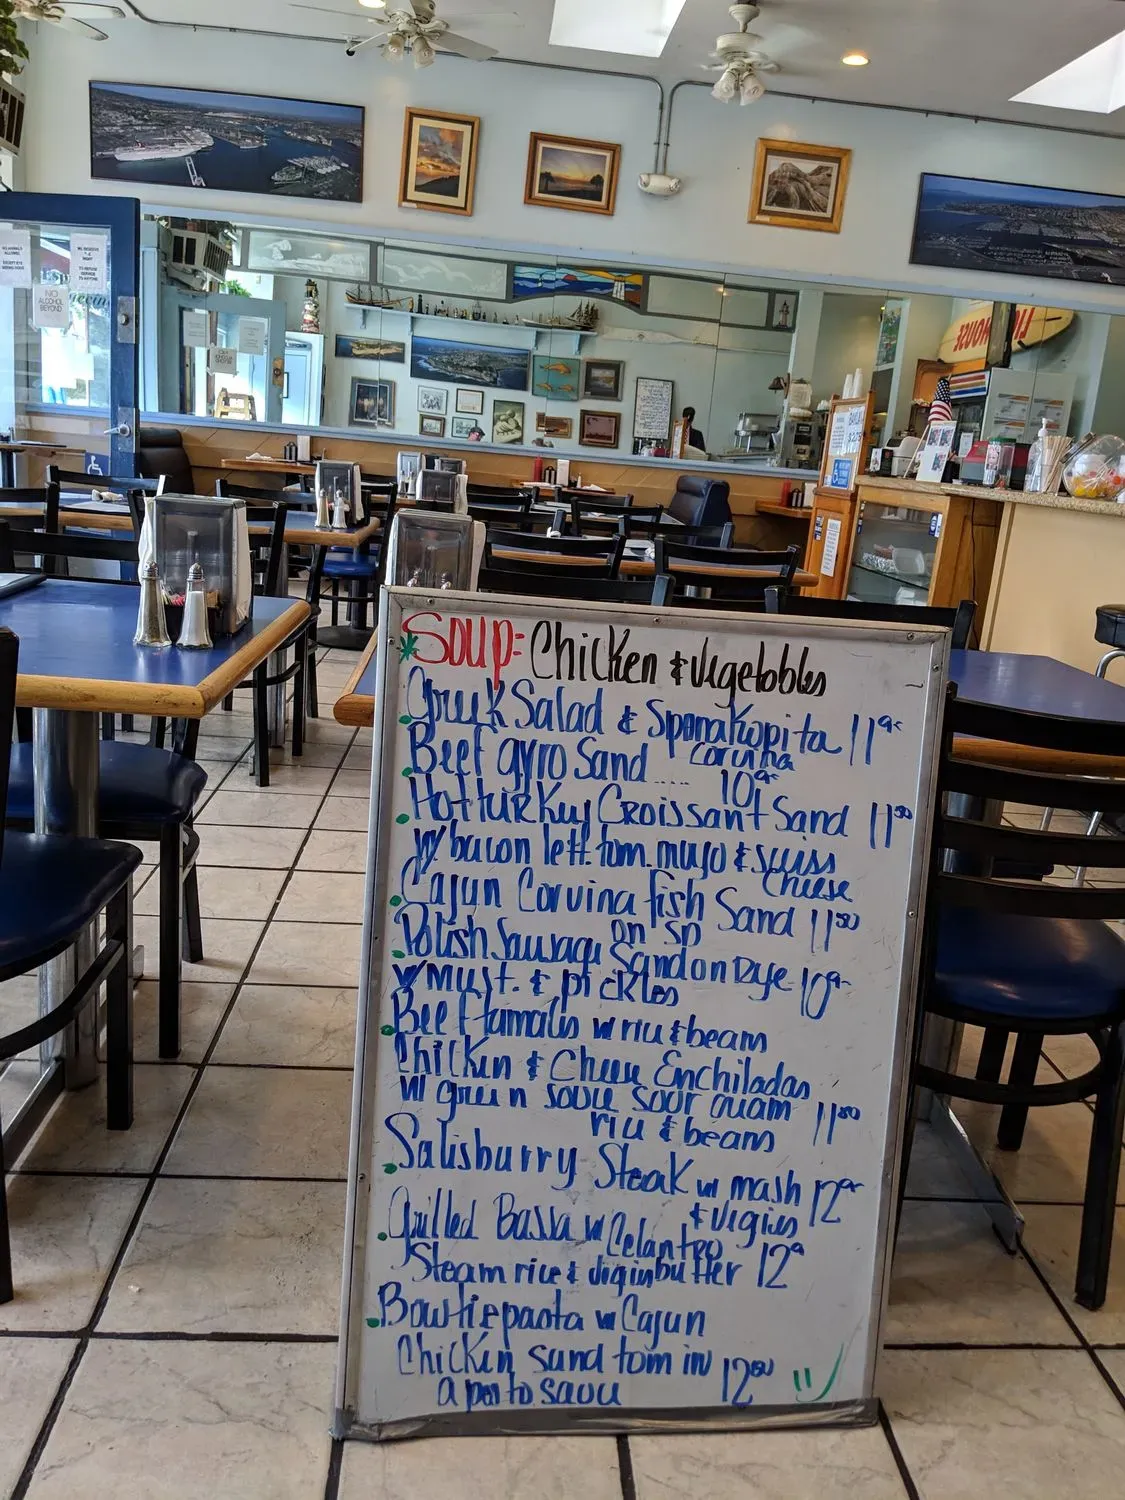 *SOUP: Chicken & vegetables
Greek Salad & Spanakopita 11
Beef gyro Sand .... 10
corvina
Hot turkey Croissant Sand 11⁵⁰
w/bacon lett tom. mayo & swiss
Cheese
Cajun Corvina fish Sand 11⁵⁰
on SD
Polish Sausage Sand on Rye 10
w/must. & pickles
Beef tamales w rice & beans
Chicken & Cheese Enchiladas
w green sauce sour cream 11⁵⁰
rice & beans
Salisburry Steak w mash 12
& vegies
Grilled Bassa w Celantro
Steam rice & vigies butter 12
Bowtie pasta w Cajun
Chicken sund tom in 12⁵⁰
a pesto sauce
NO
ALCOHOL
BEYOND